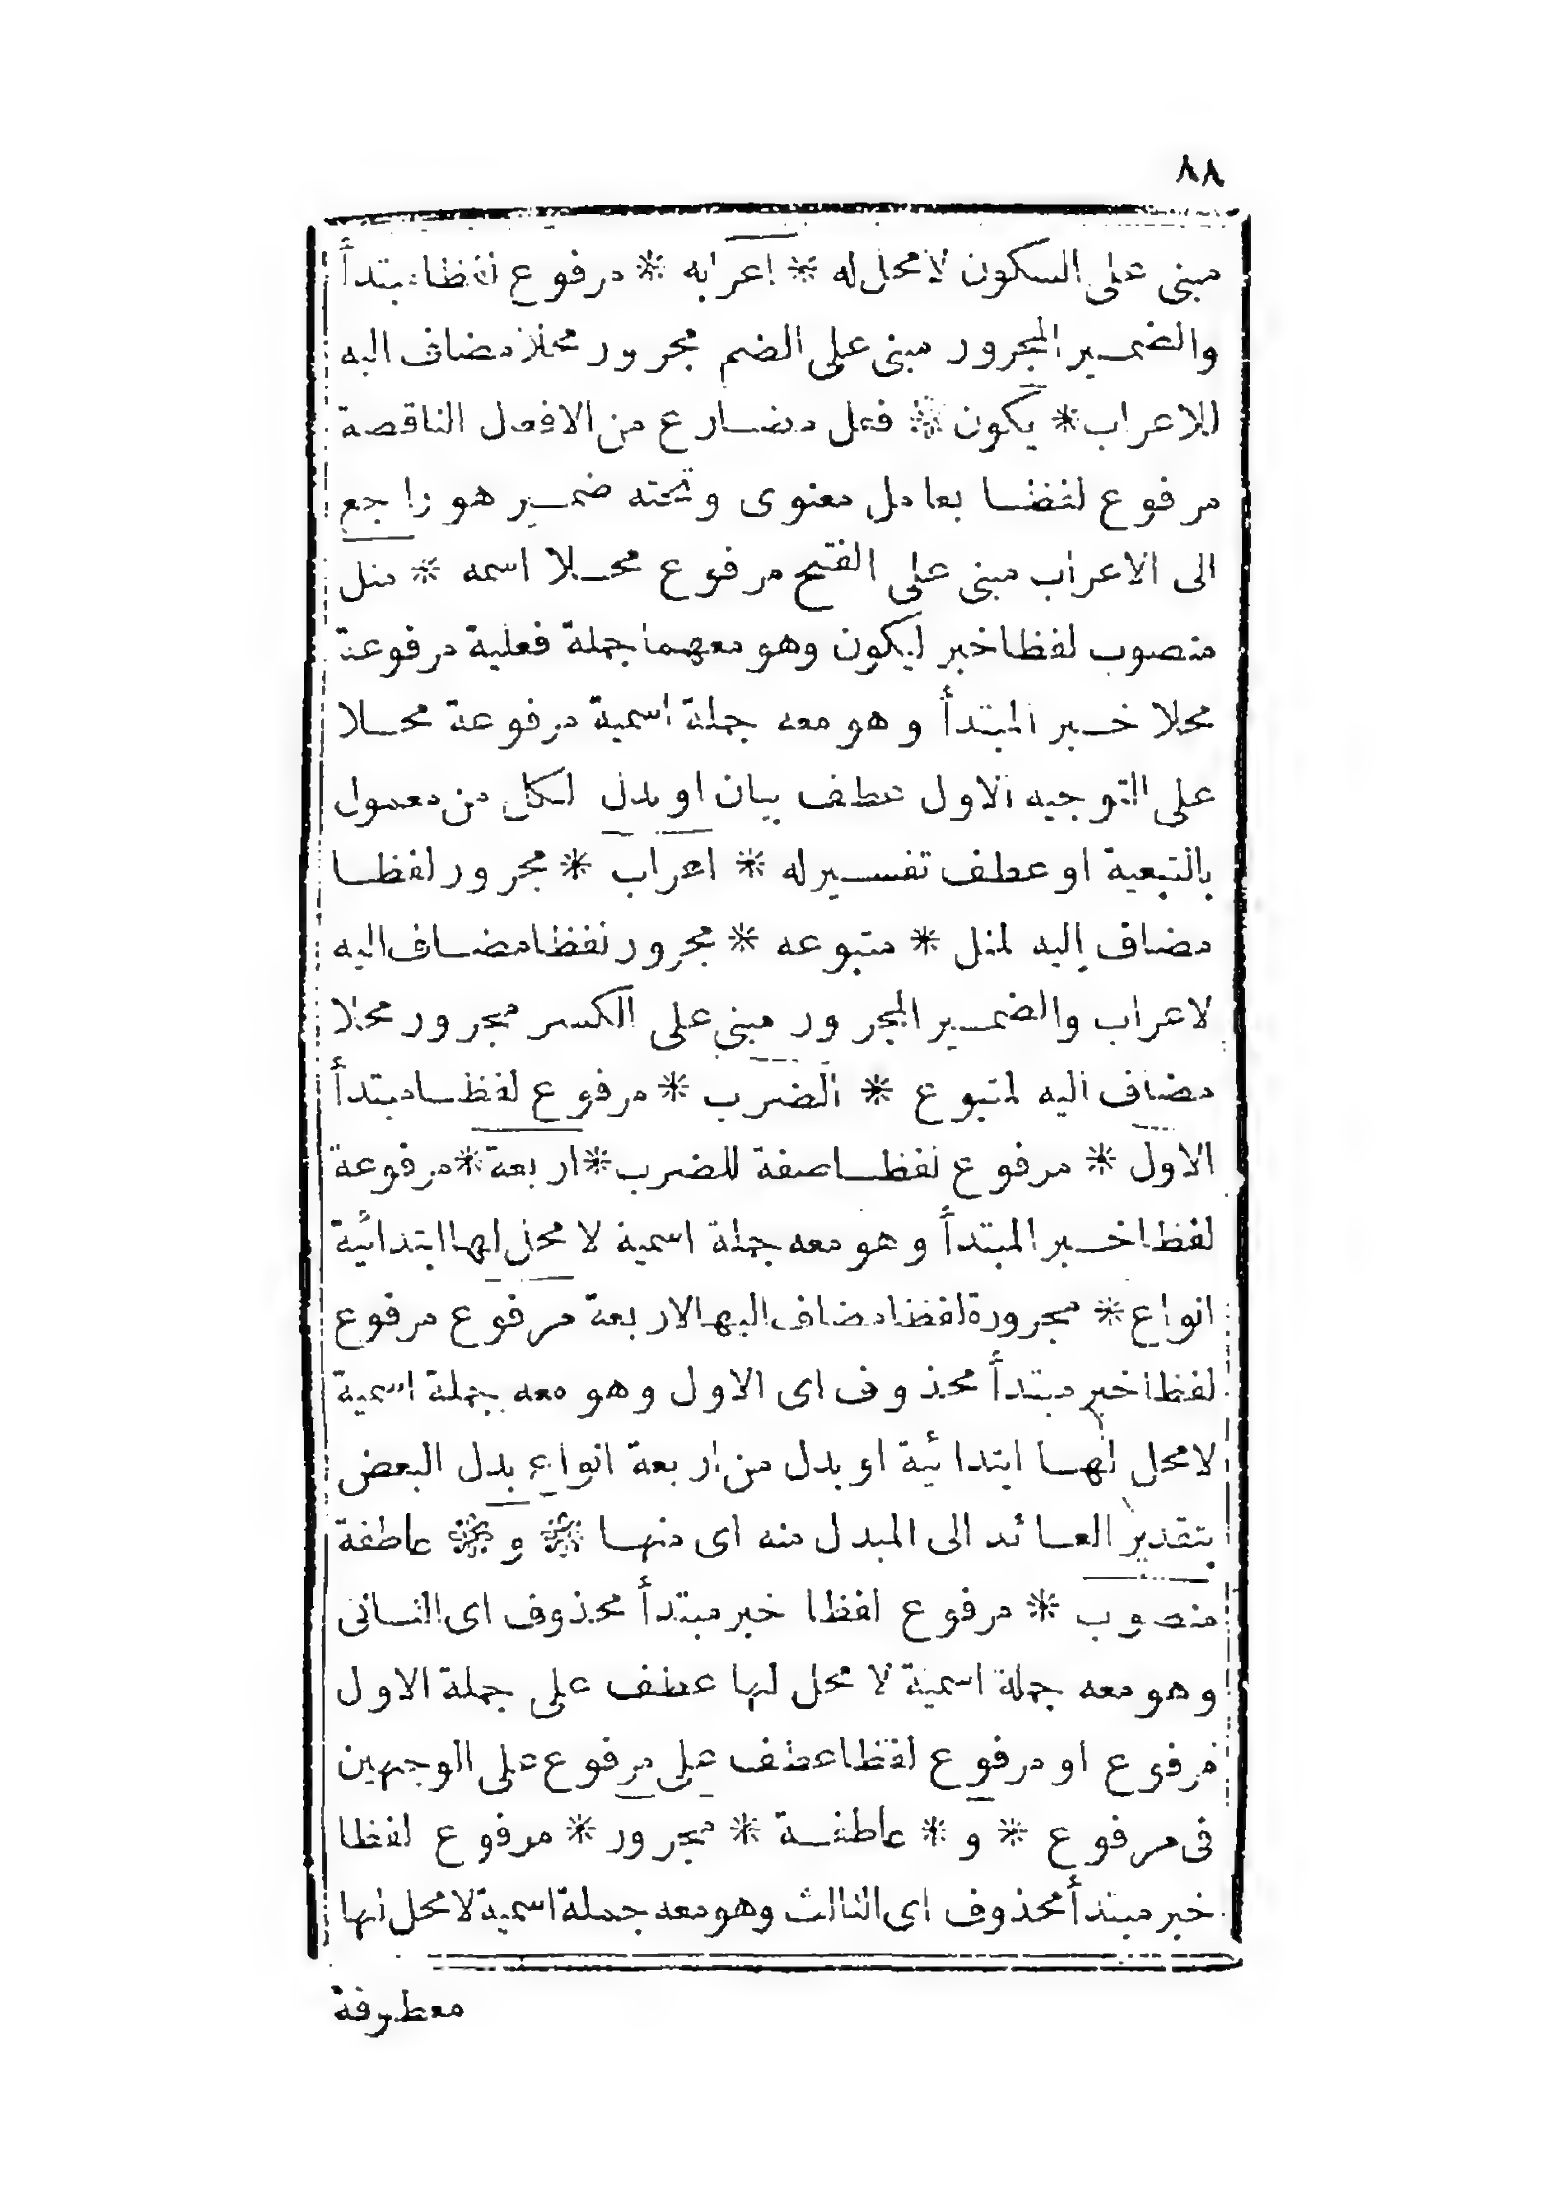 ٨٨
مبنى على السكون لامحل له * اعرابه * مرفوع لفظا مبتدأ
والضمير المجرور مبنى على الضم مجرور محلا مضاف اليه
للاعراب * يكون * فعل مضارع من الافعال الناقصة
مرفوع لفظا بعامل معنوى وتحته ضمير هو راجع
الى الاعراب مبنى على الفتح مرفوع محلا اسمه * مثل
منصوب لفظا خبر ليكون وهو معهما جملة فعلية مرفوعة
محلا خبر المبتدأ وهو معه جملة اسمية مرفوعة محلا
على التوجيه الاول عطف بيان او بدل الكل من معمول
بالتبعية او عطف تفسير له * اعراب * مجرور لفظا
مضاف اليه لمثل * متبوعه * مجرور لفظا مضاف اليه
لاعراب والضمير المجرور مبنى على الكسر مجرور محلا
مضاف اليه لمتبوع * الضرب * مرفوع لفظا مبتدأ
الاول * مرفوع لفظا صفة للضرب * اربعة * مرفوعة
لفظا خبر المبتدأ وهو معه جملة اسمية لا محل لها ابتدائية
انواع * مجرورة لفظا مضاف اليها لاربعة مرفوع مرفوع
لفظا خبر مبتدأ محذوف اى الاول وهو معه جملة اسمية
لامحل لها ابتدائية او بدل من اربعة انواع بدل البعض
بتقدير العائد الى المبدل منه اى منها * و * عاطفة
منصوب * مرفوع لفظا خبر مبتدأ محذوف اى الثانى
وهو معه جملة اسمية لا محل لها عطف على جملة الاول
مرفوع او مرفوع لفظا عطف على مرفوع على الوجهين
فى مرفوع * و * عاطفة * مجرور * مرفوع لفظا
خبر مبتدأ محذوف اى الثالث وهو معه جملة اسمية لامحل لها
معطوفة